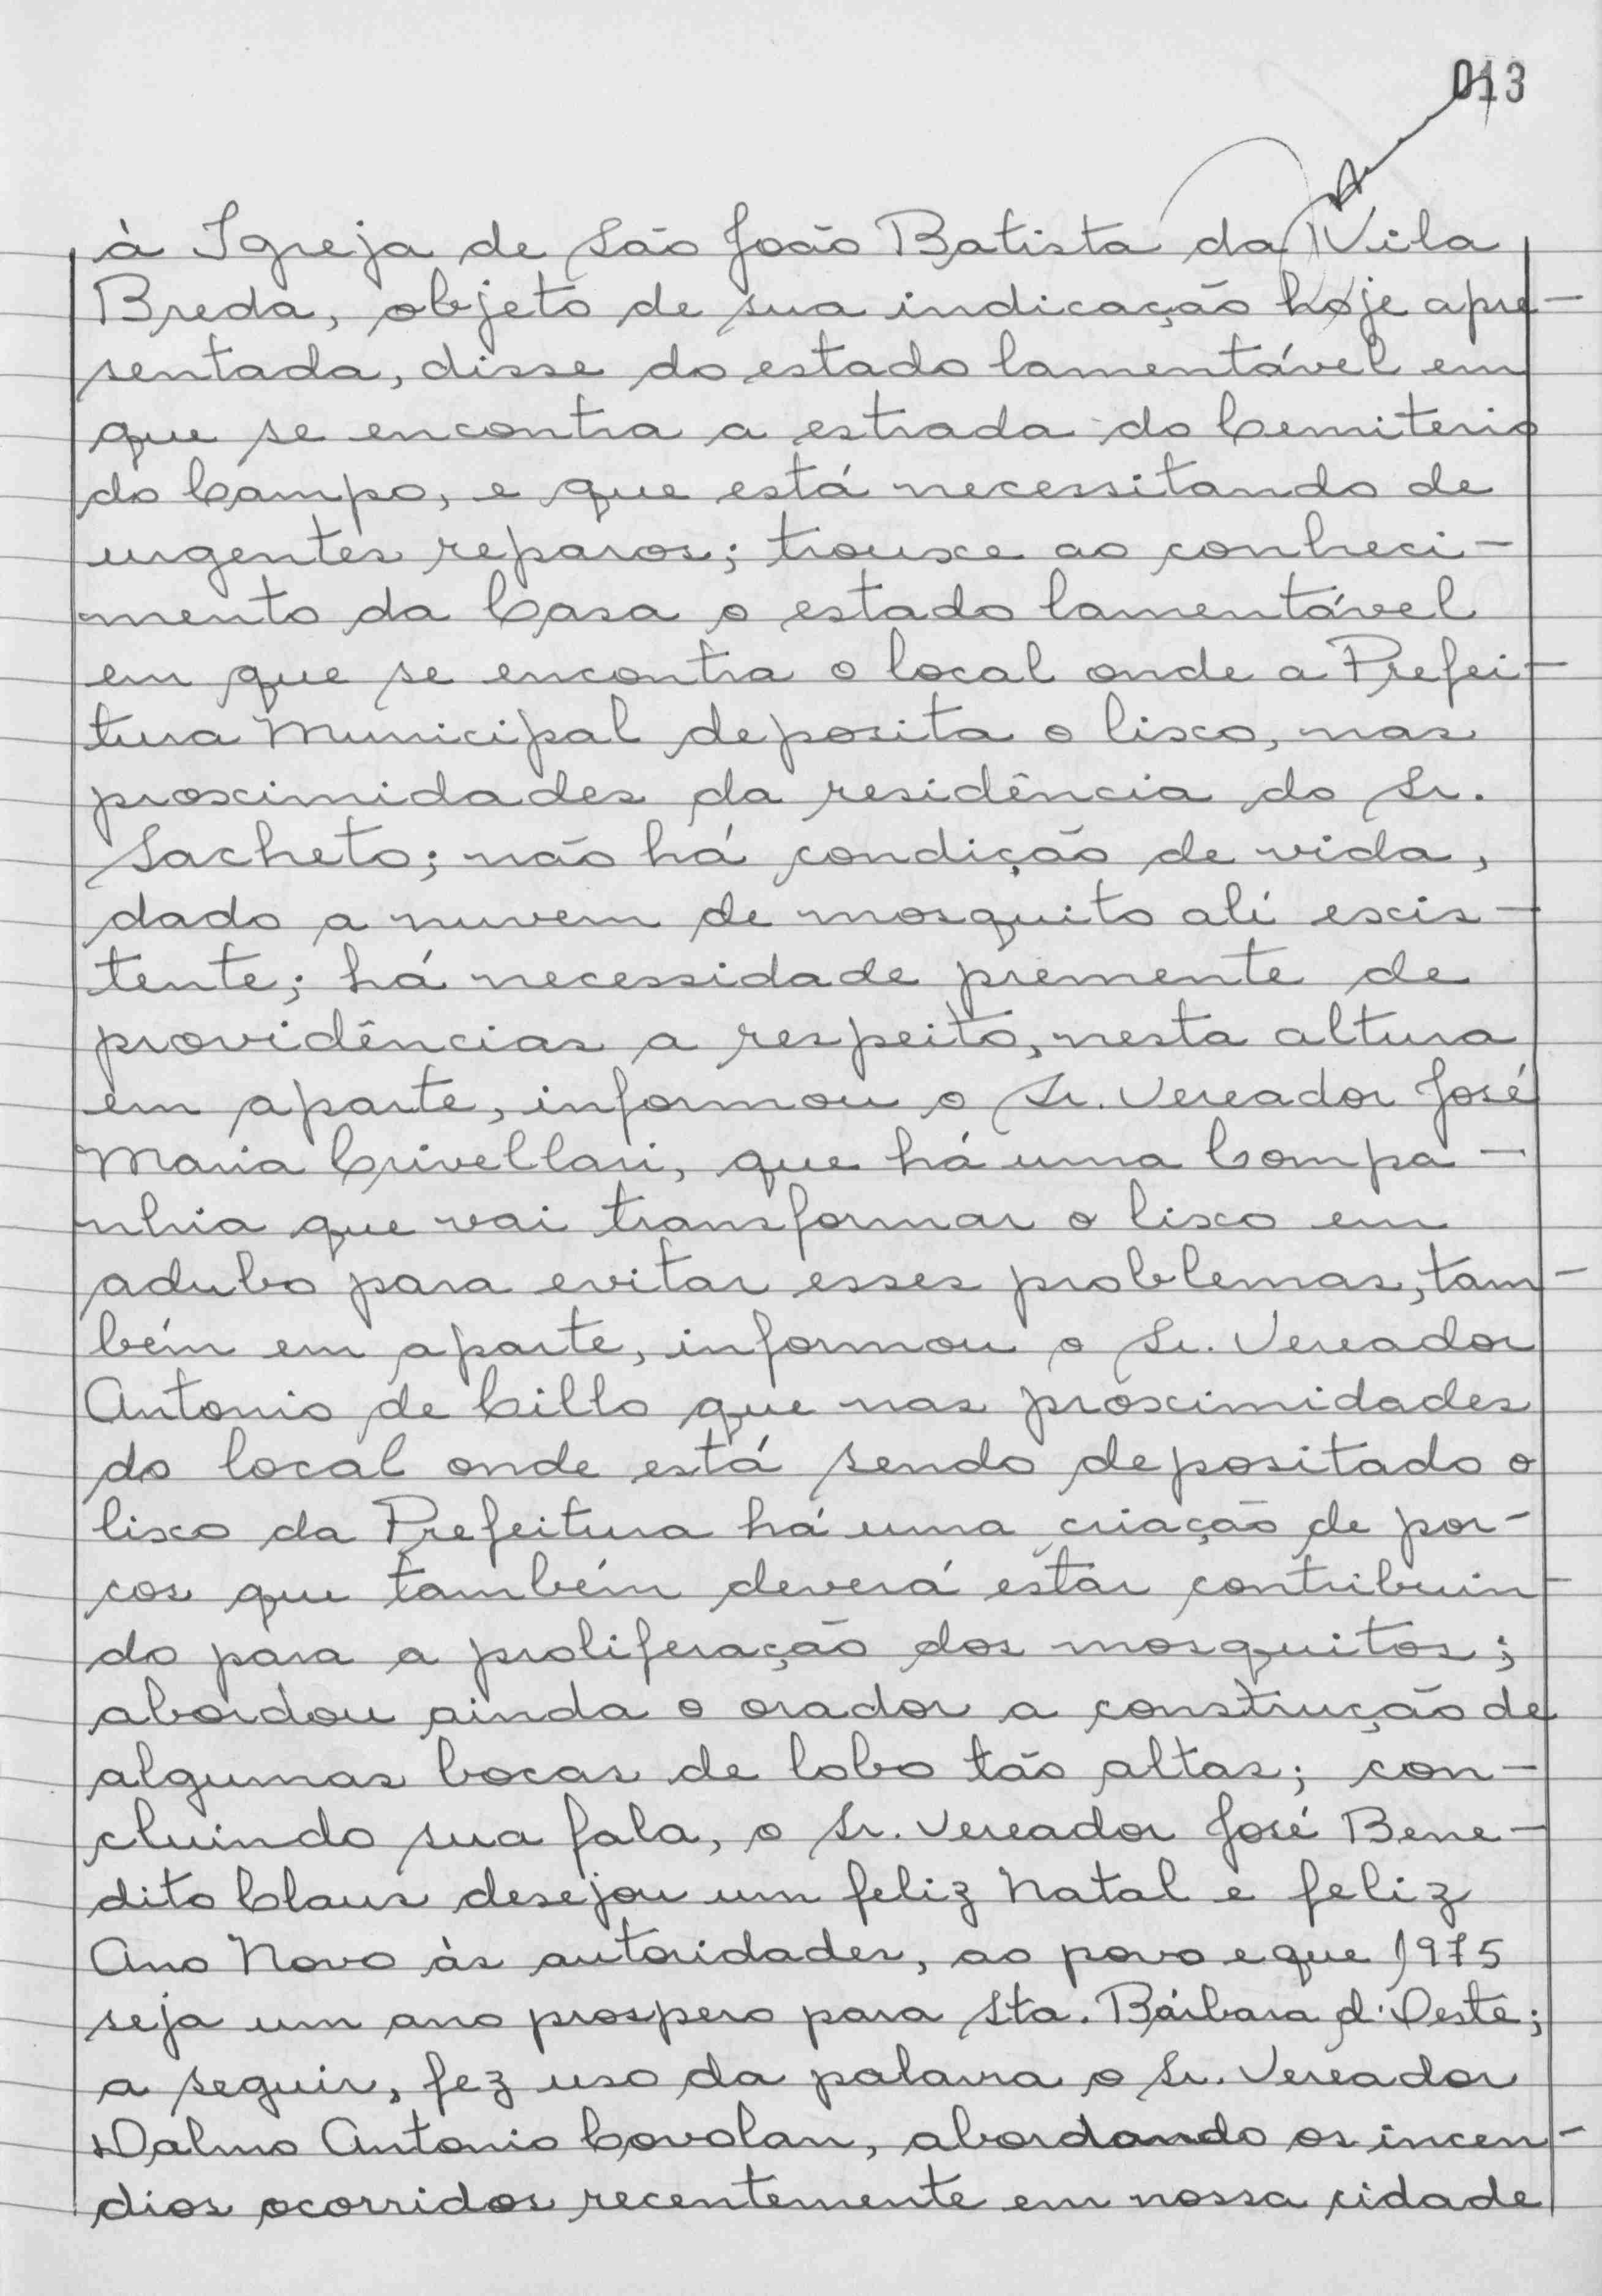 013
à Igreja de São João Batista da Vila
Breda, objeto de sua indicação hoje apre-
sentada, disse do estado lamentável em
que se encontra a estrada do Cemiterio
do Campo, e que está necessitando de
urgentes reparos; trouxe ao conheci-
mento da Casa o estado lamentável
em que se encontra o local onde a Prefei-
tura Municipal deposita o lixo, nas
proximidades da residência do Sr.
Sacheto; não há condição de vida,
dado a nuvem de mosquito alí exis-
tente; há necessidade premente de
providências a respeito, nesta altura
em aparte, informou o Sr. Vereador José
Maria Crivellari, que há uma Compa-
nhia que vai transformar o lixo em
adubo para evitar esses problemas, tam-
bém em aparte, informou o Sr. Vereador
Antonio de Cillo que nas proximidades
do local onde está sendo depositado o
lixo da Prefeitura há uma criação de por-
cos que também deverá estar contribuin-
do para a proliferação dos mosquitos;
abordou ainda o orador a construção de
algumas bocas de lobo tão altas; con-
cluindo sua fala, o Sr. Vereador José Bene-
dito Claus desejou um feliz Natal e feliz
Ano Novo às autoridades, ao povo e que 1975
seja um ano prospero para Sta. Bárbara d'Oeste;
a seguir, fez uso da palavra o Sr. Vereador
Dalmo Antonio Covolan, abordando os incen-
dios ocorridos recentemente em nossa cidade